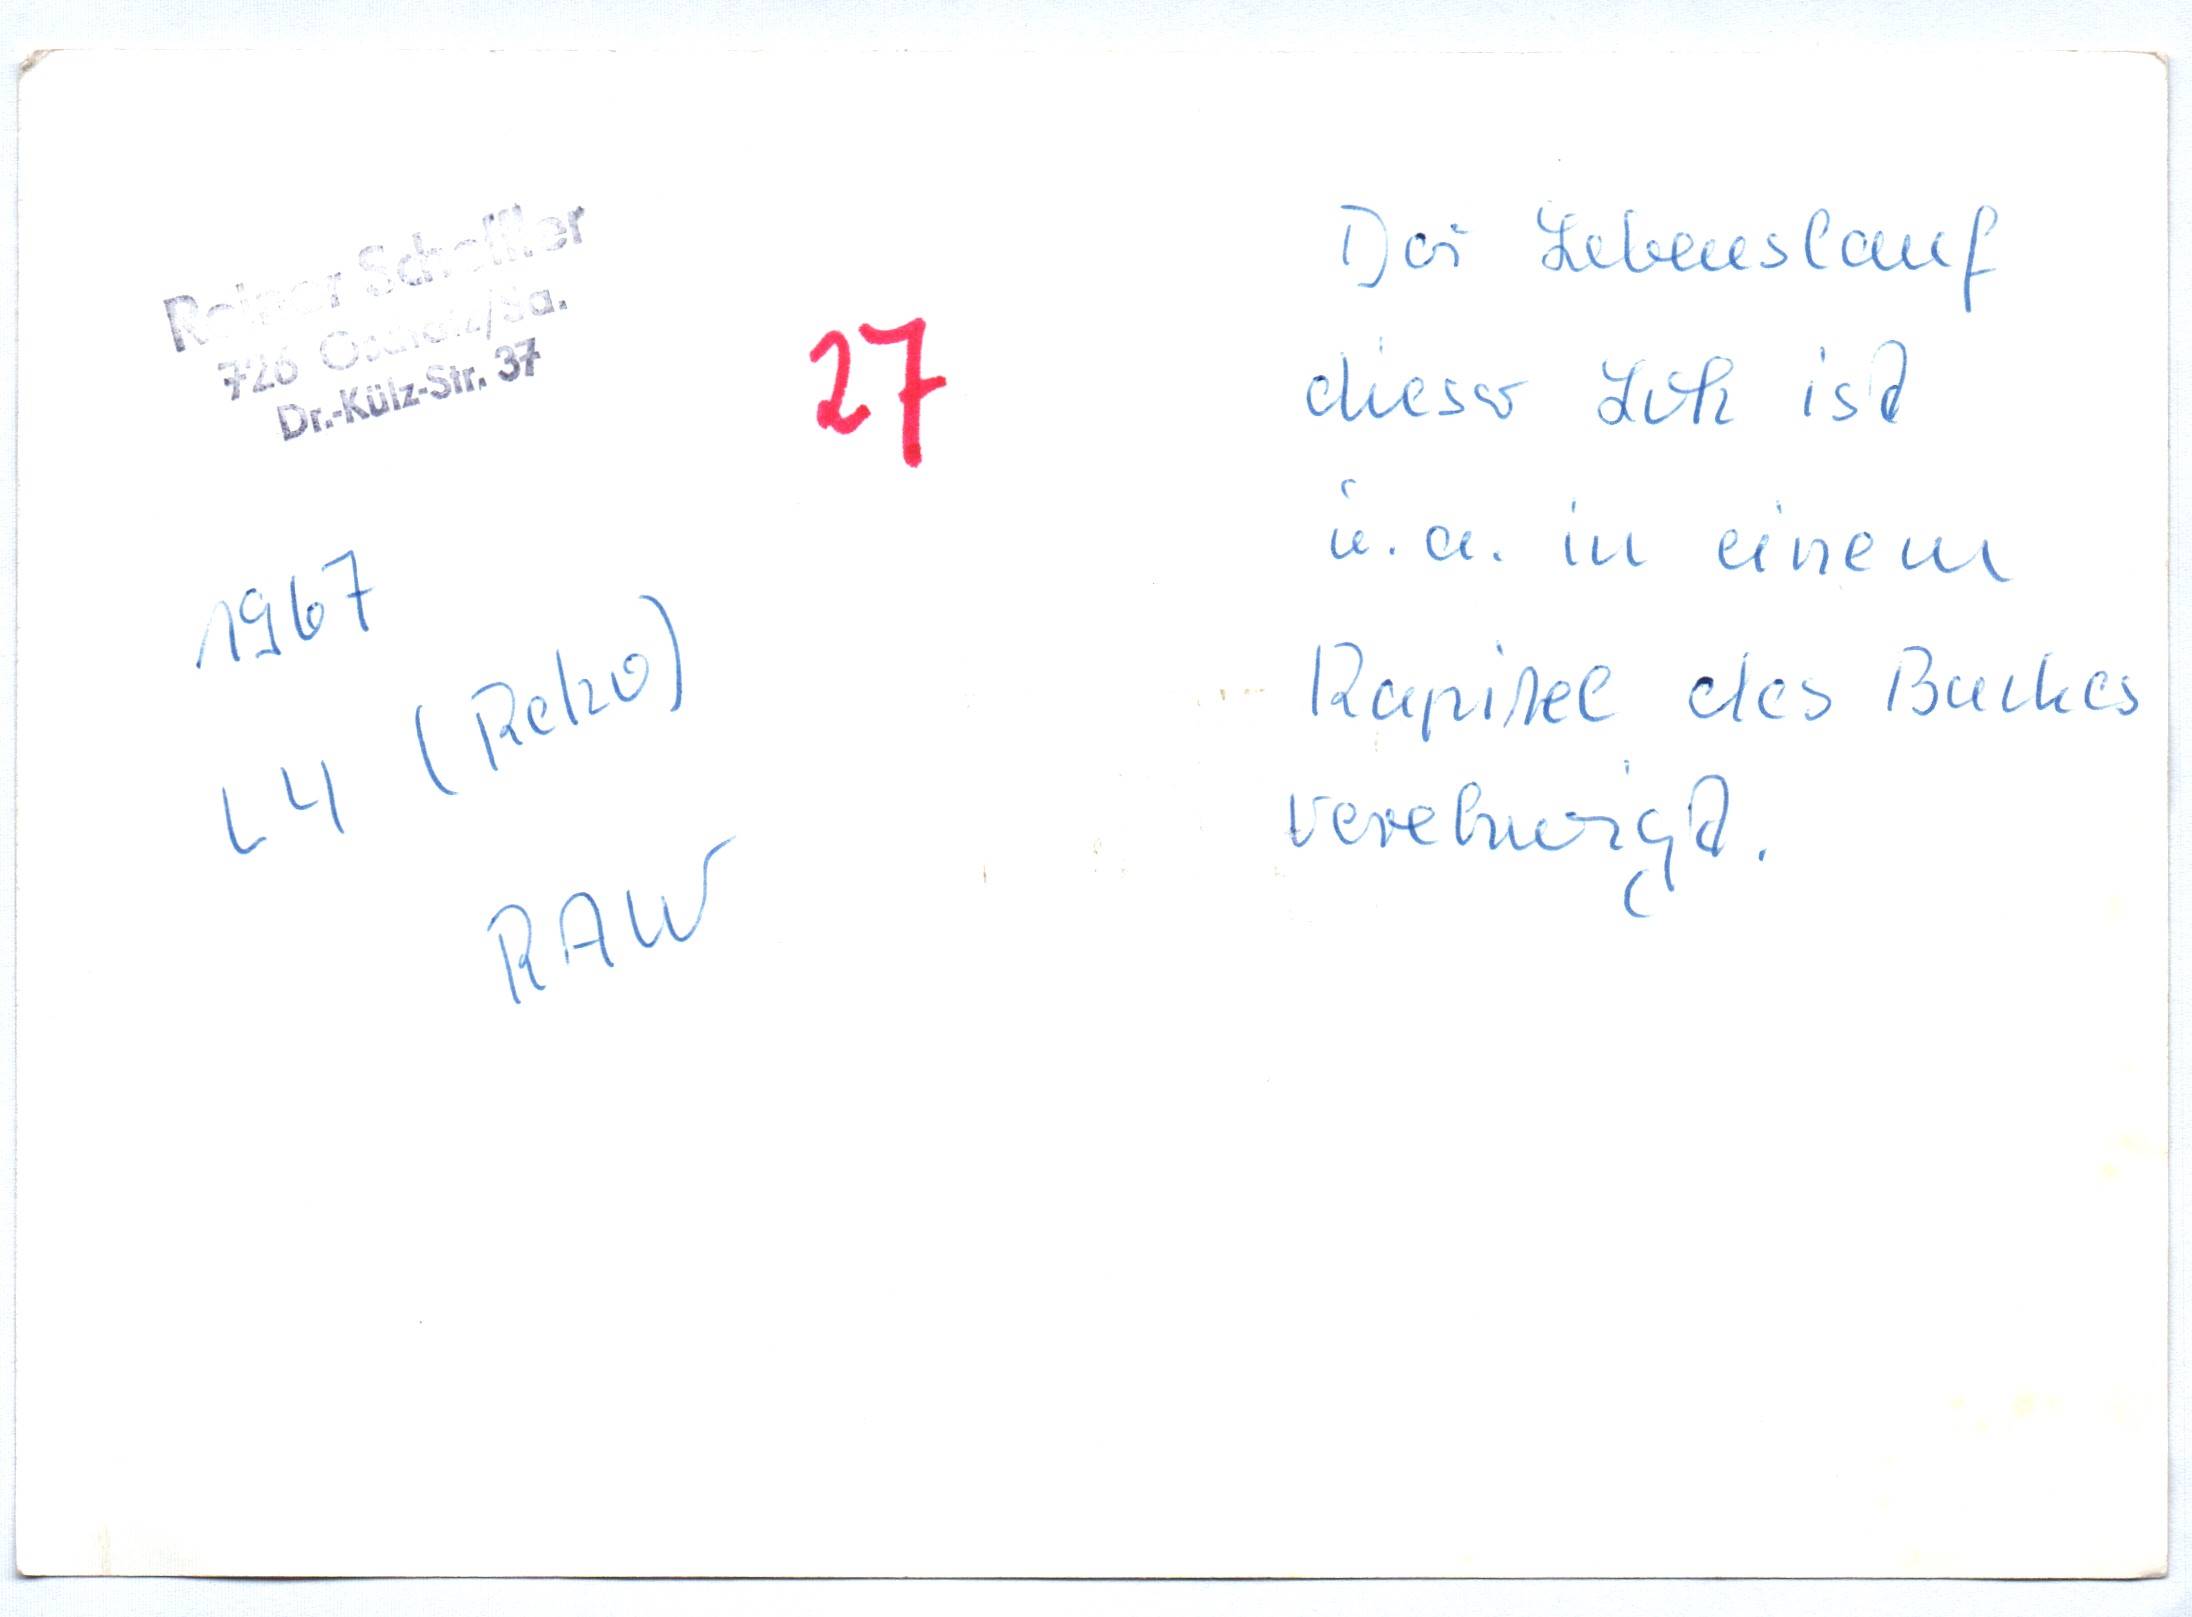 Reiner Scheffler
726 Oschatz/Sa.
Dr.-Külz-Str. 37
27
1967
L4 (Reko)
RAW
Der Lebenslauf
dieser Lok ist
u.a. in einem
Kapitel des Buches
verewigt.